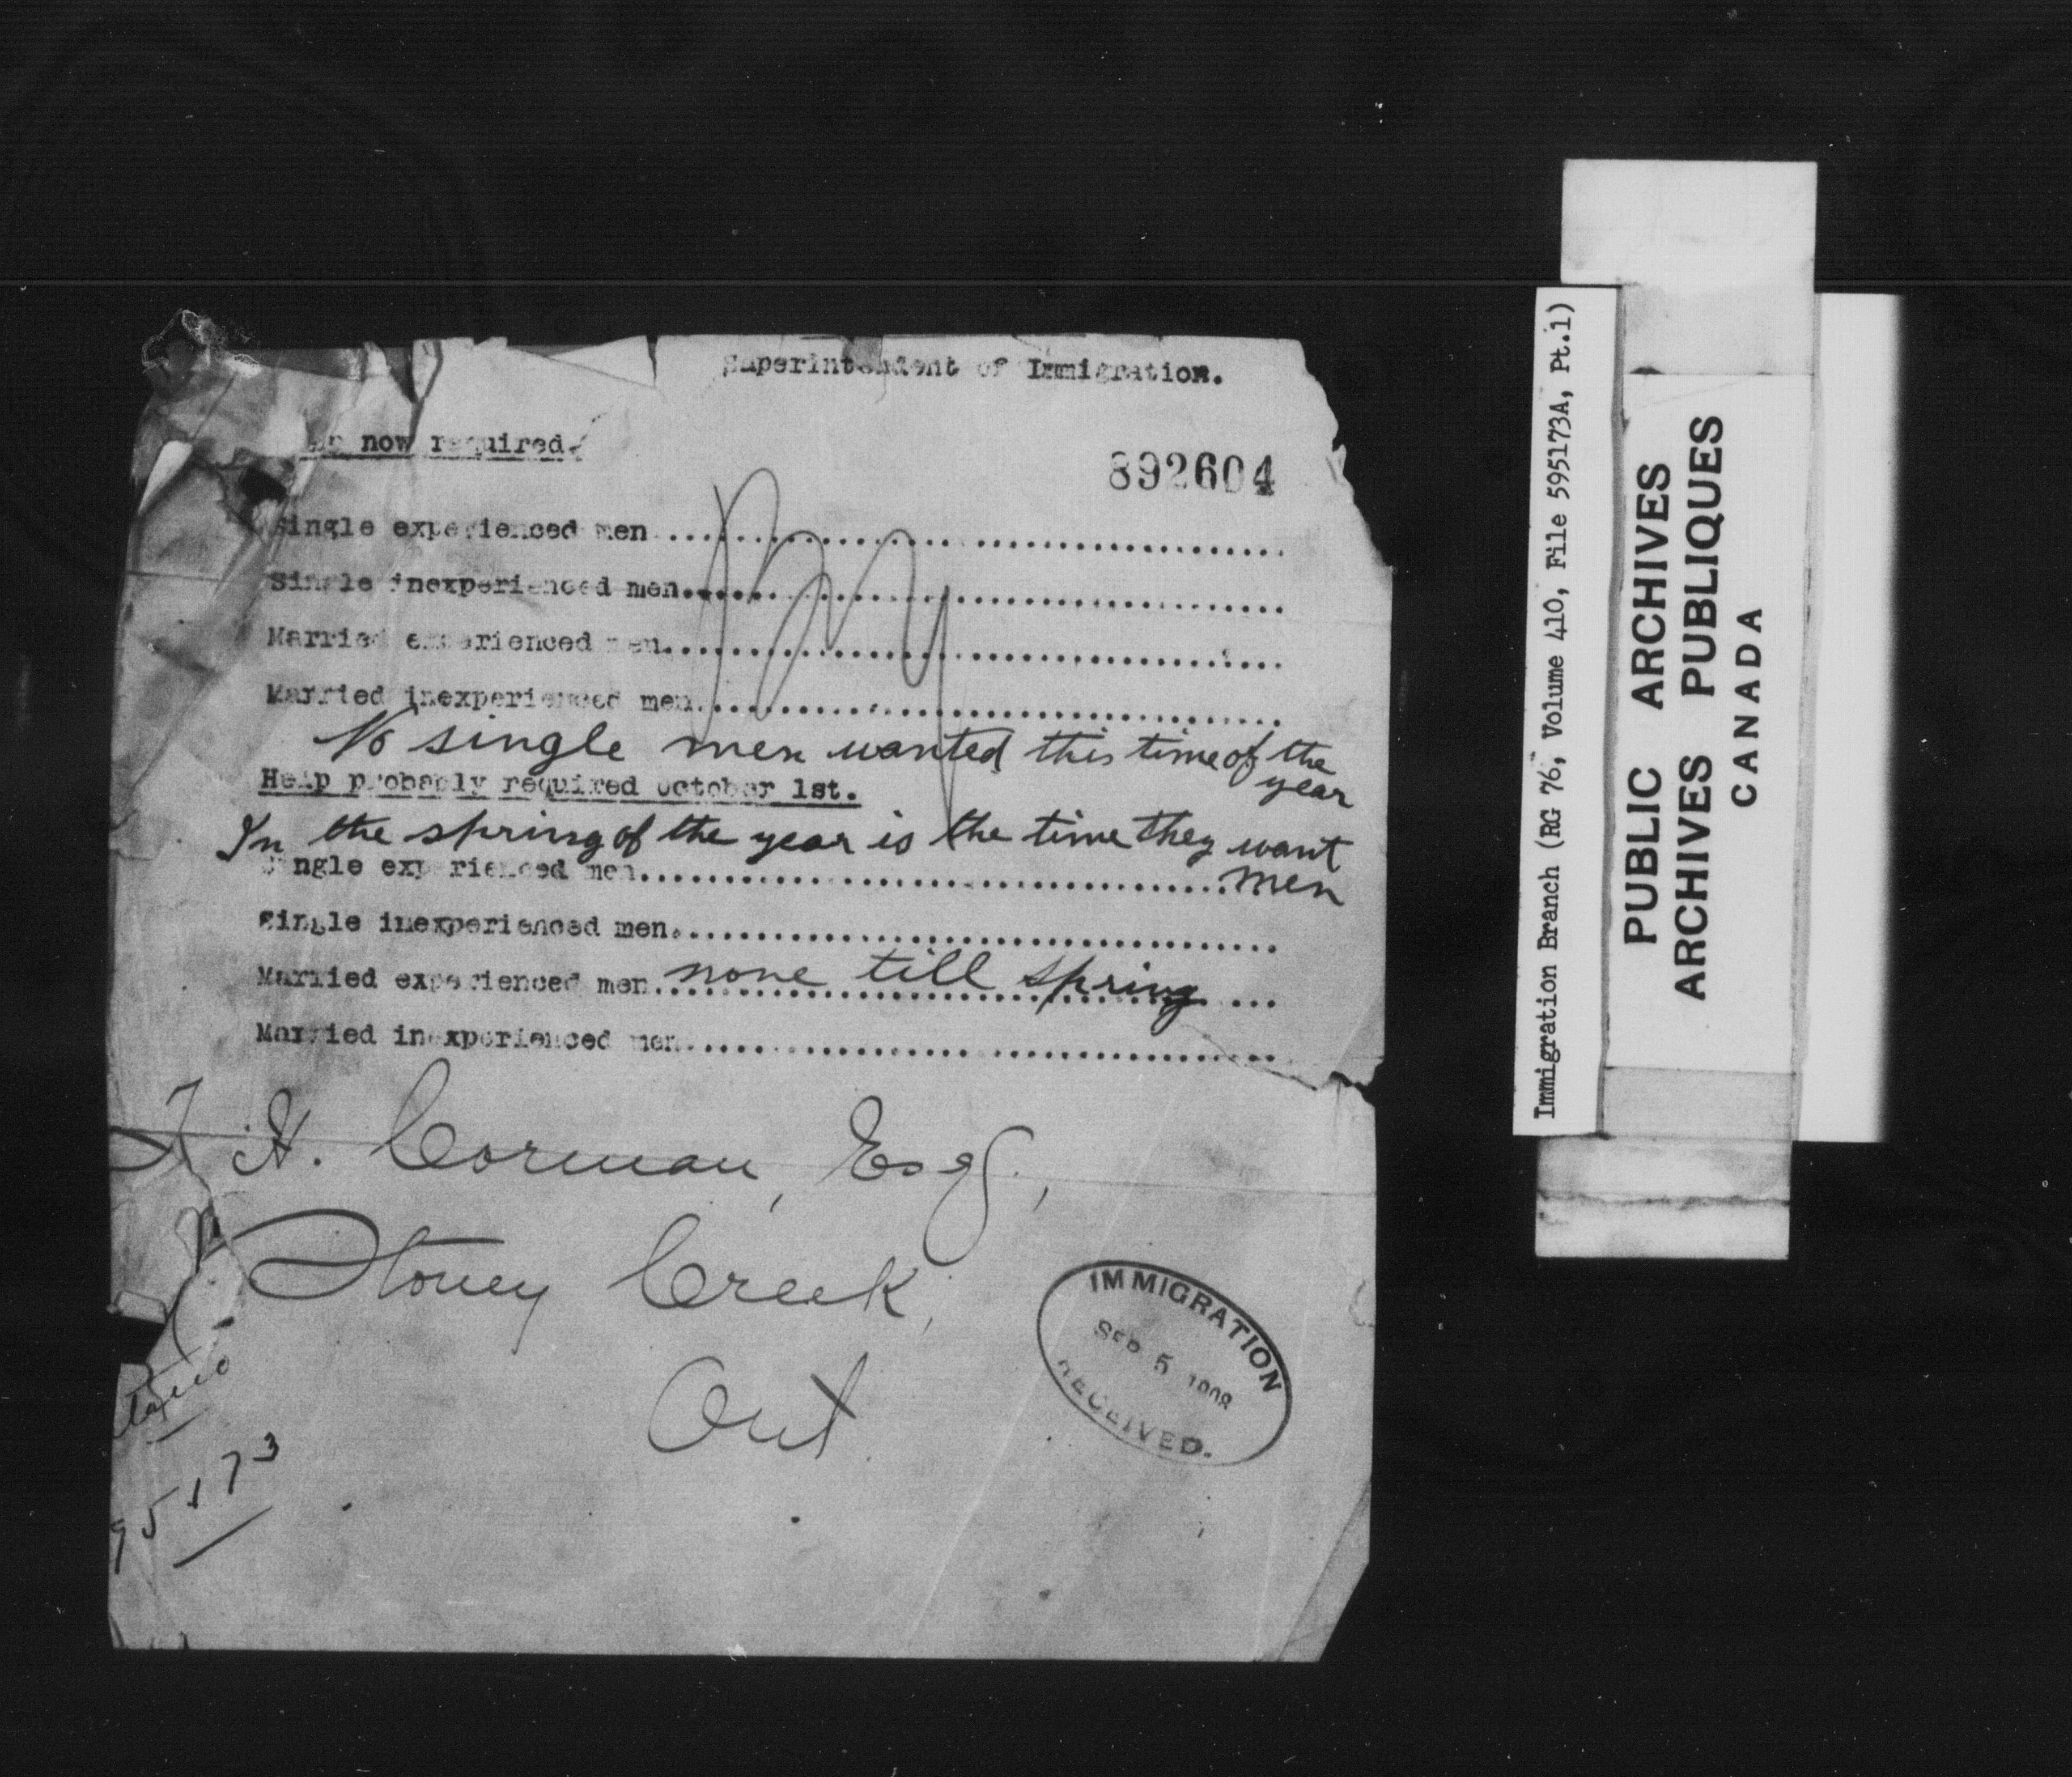 Superintendent of Immigration.
now required.
892604
Single experienced men
Single inexperienced men
Married experienced men
Married inexperienced men
No single men wanted this time of the
year
Help probably required October 1st.
In the spring of the year is the time they want
men
Single experienced men
Single inexperienced men
Married experienced men none till spring
Married inexperienced men
H. Corman, Esq.,
Stoney Creek,
Ont.
IMMIGRATION
SEP 5 1908
RECEIVED.
95173
Immigration Branch (RG 76, Volume 410, File 595173A, Pt.1)
PUBLIC ARCHIVES
ARCHIVES PUBLIQUES
CANADA